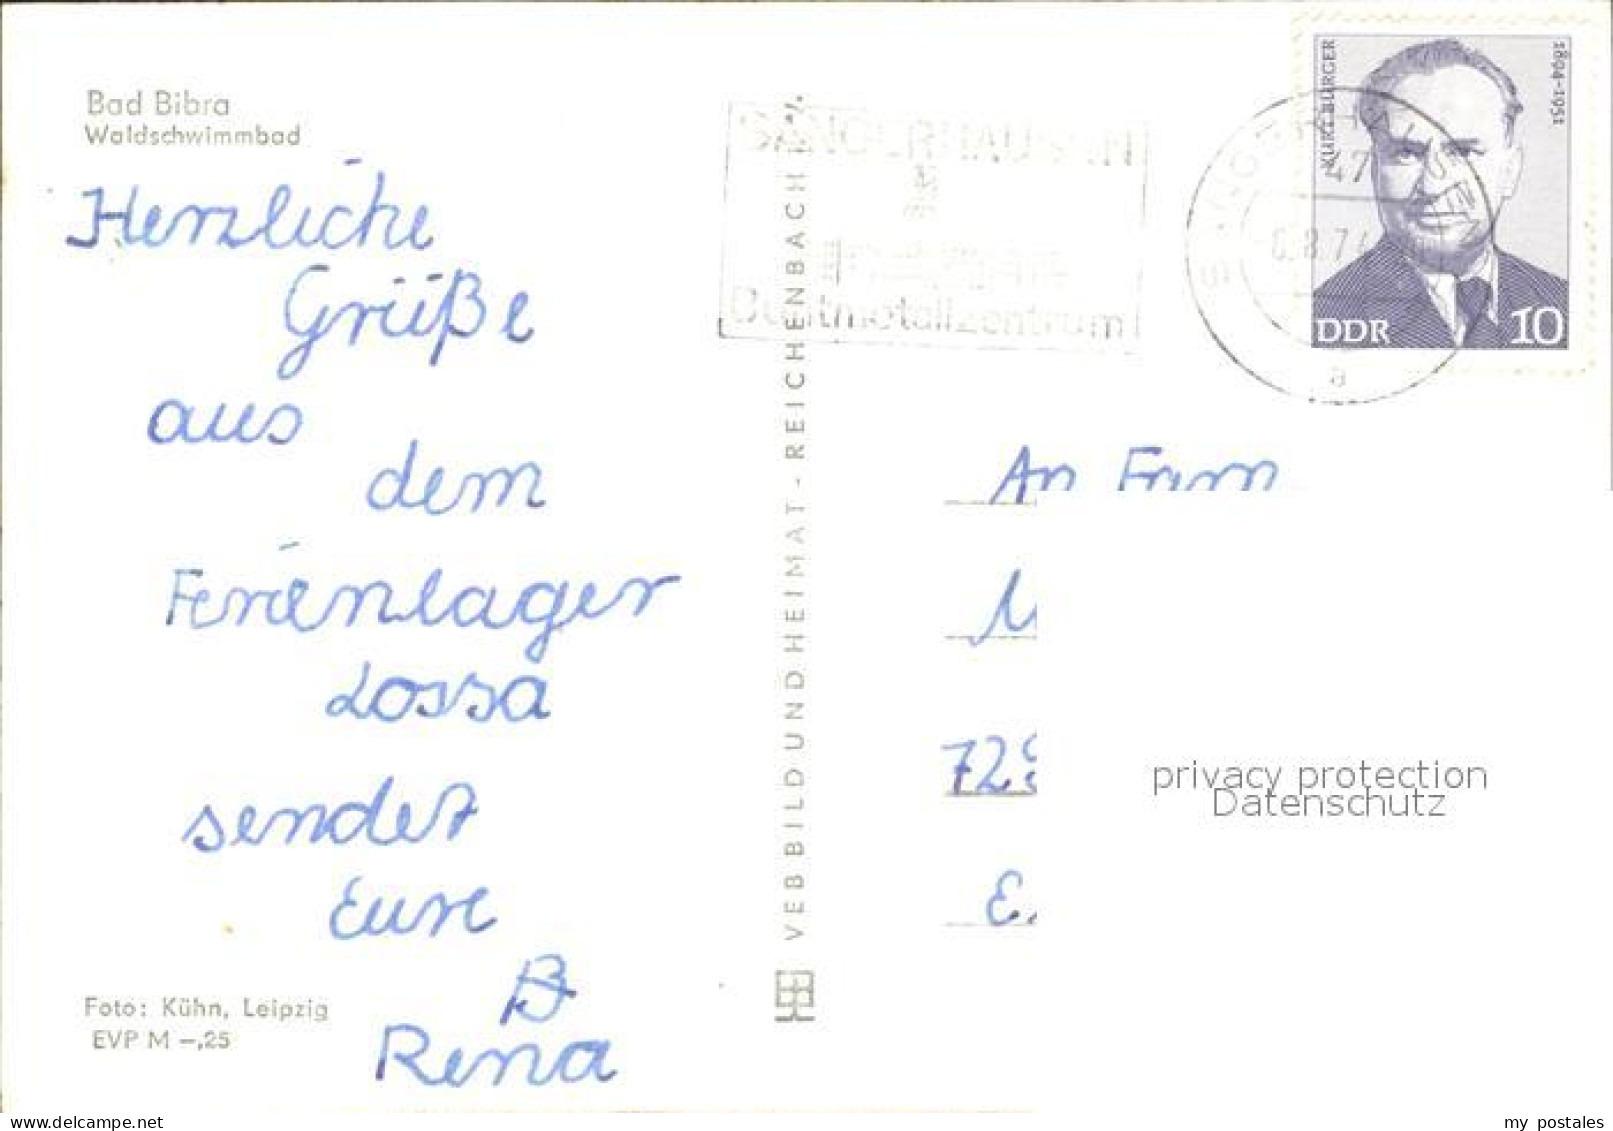 Bad Bibra
Waldschwimmbad
Herzliche
Grüße
aus
dem
Ferienlager
Lossa
sendet
Eure
Rena
Foto: Kühn, Leipzig
EVP M –,25
VEB BILD UND HEIMAT - REICHENBACH i. V.
SANGERHAUSEN
Buntmetallzentrum
SANGERHAUSEN
47
6.8.74
a
KURT BÜRGER
1894-1951
DDR 10
An Fam
729
privacy protection
Datenschutz
www.delcampe.net
my postales